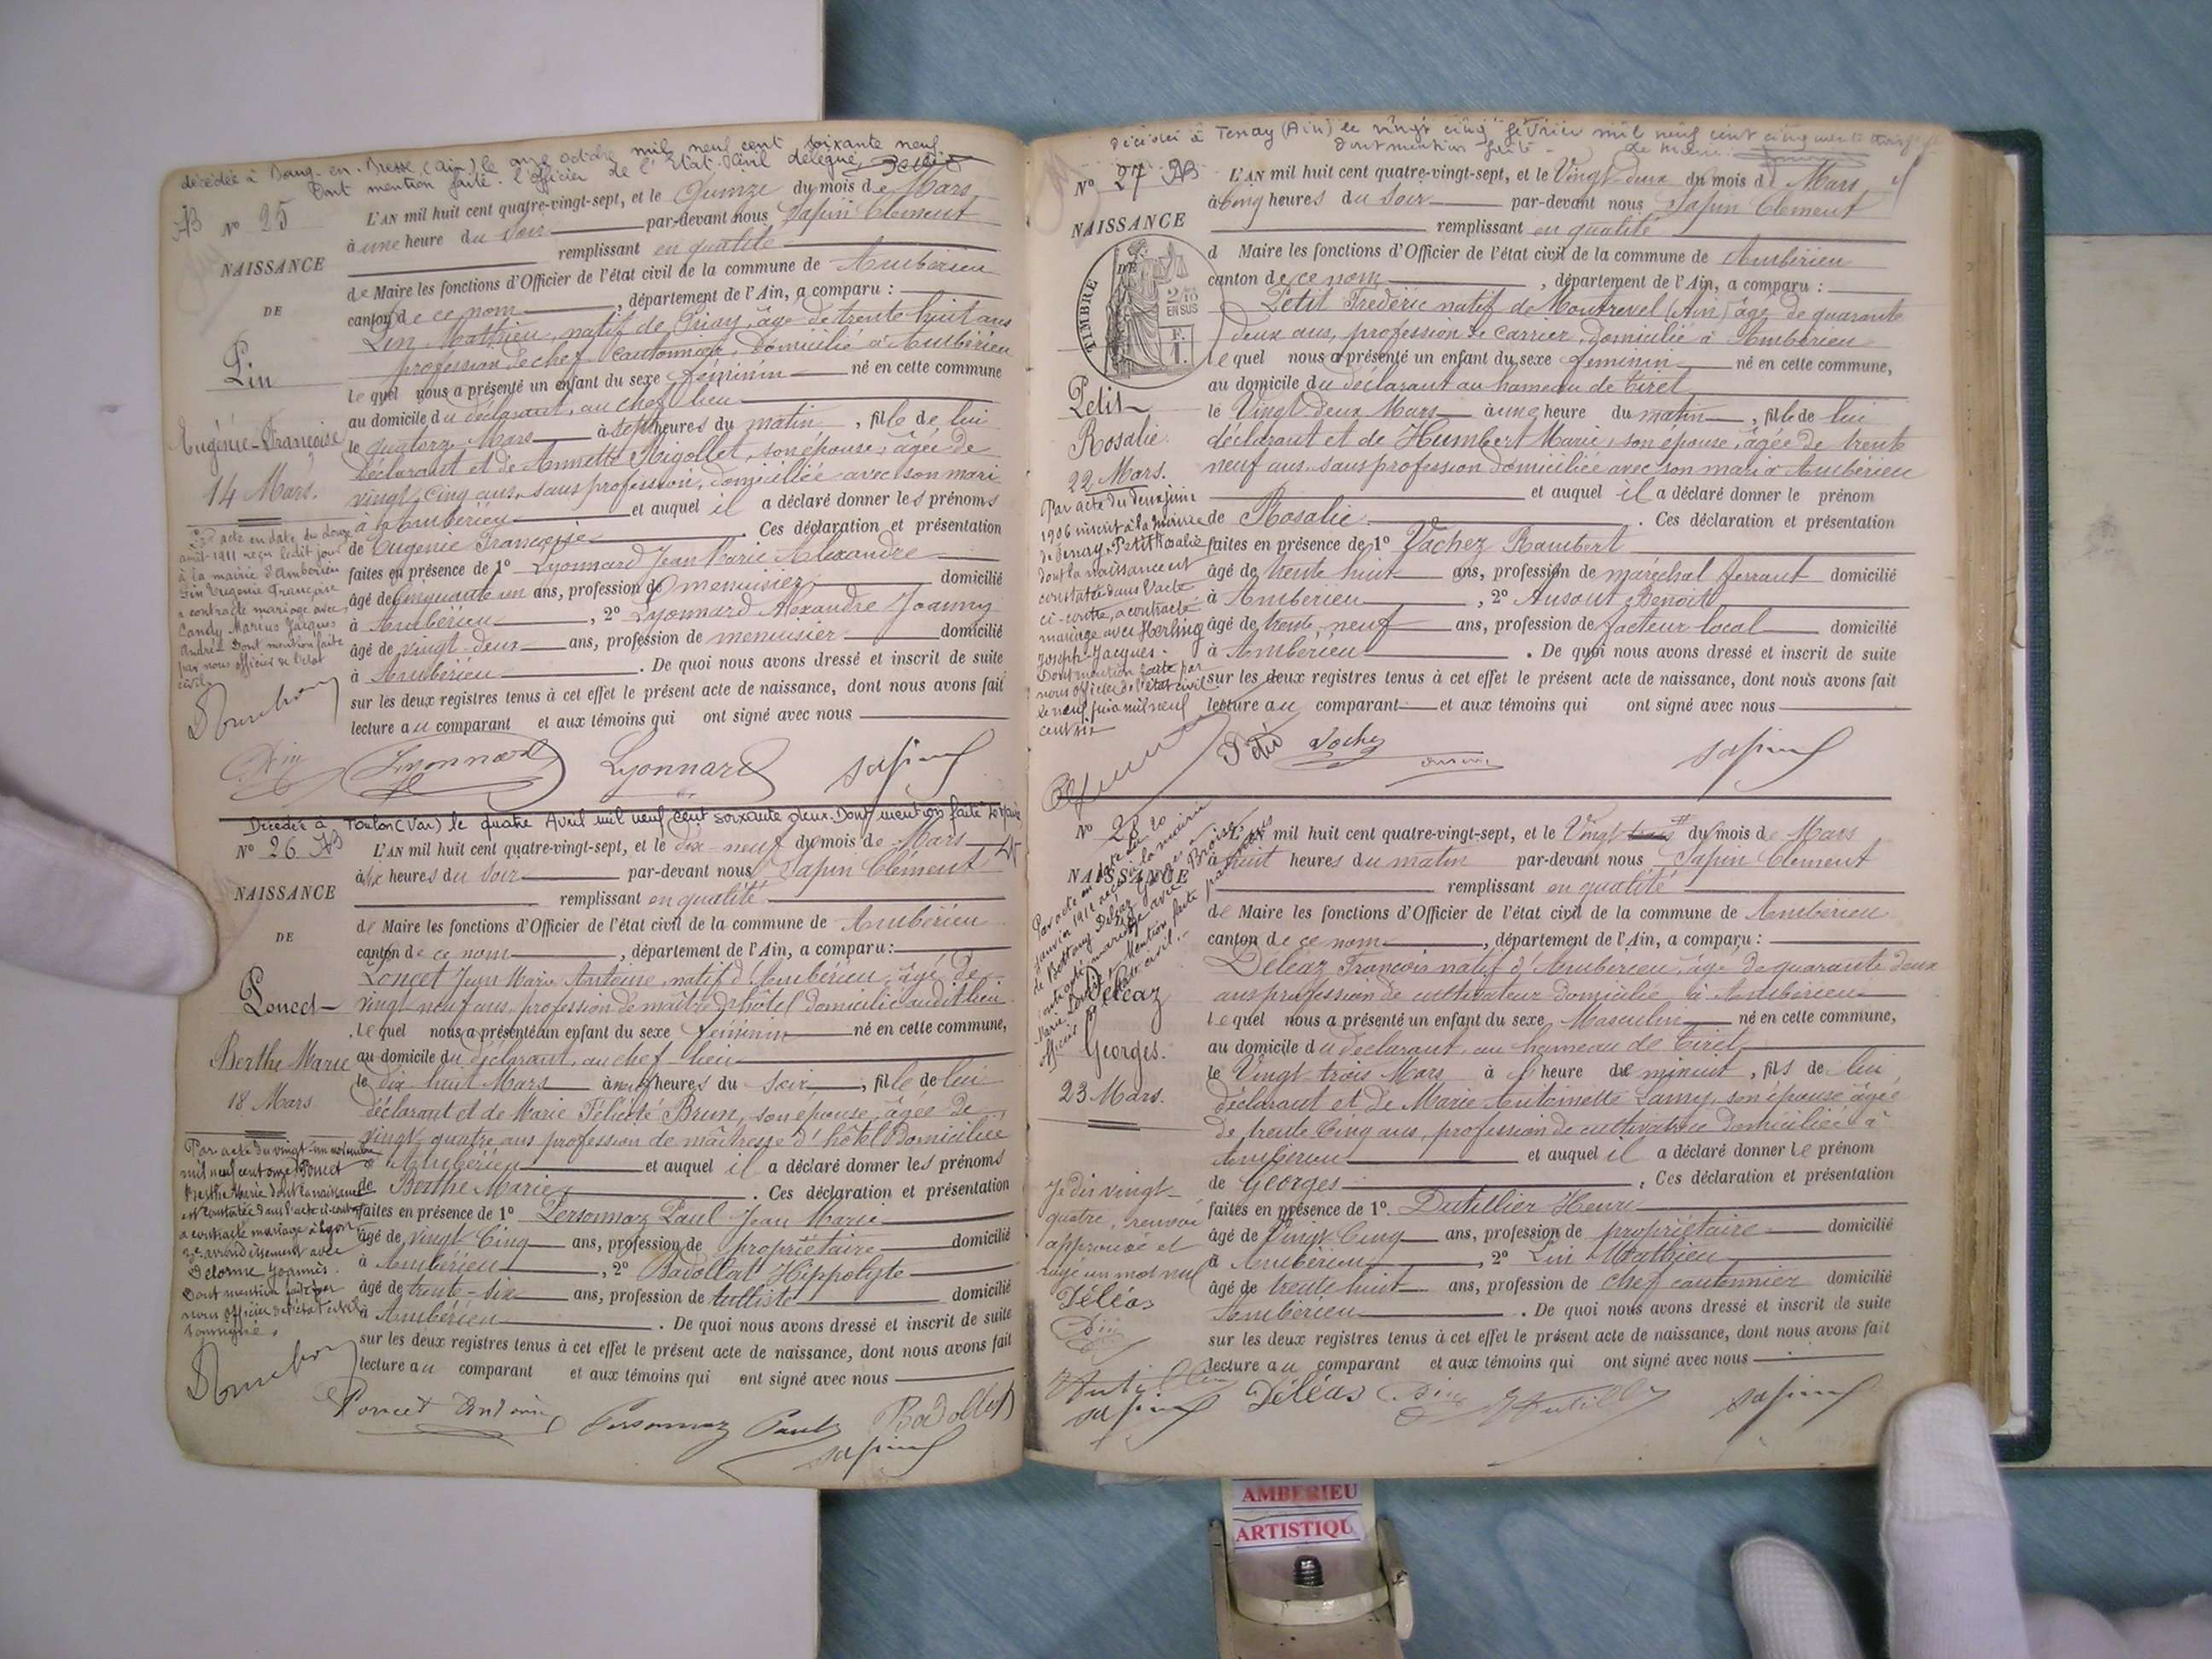 décédée à Bourg-en-Bresse (Ain) le onze octobre mil neuf cent soixante neuf
Dont mention faite. l'officier de l'Etat-Civil délégué
AB N° 25
NAISSANCE
DE
Lin
Eugénie-Françoise
14 Mars.
L'AN mil huit cent quatre-vingt-sept, et le Quinze du mois de Mars
à une heure du soir par-devant nous Sapin Clément
remplissant en qualité
de Maire les fonctions d'Officier de l'état civil de la commune de Ambérieu
canton de ce nom, département de l'Ain, a comparu :
Lin Mathieu, natif de, âgé de trente huit ans
profession de chef cantonnier, domicilié à Ambérieu
lequel nous a présenté un enfant du sexe féminin né en cette commune,
au domicile du déclarant, au chef-lieu
le quatorze Mars à sept heures du matin, fille de lui
déclarant et de Annette Rigollet, son épouse, âgée de
vingt cinq ans, sans profession, domiciliée avec son mari
à Ambérieu et auquel il a déclaré donner les prénoms
de Eugénie Françoise. Ces déclaration et présentation
faites en présence de 1° Lyonnard Jean Marie Alexandre
âgé de cinquante un ans, profession de menuisier domicilié
à Ambérieu, 2° Lyonnard Alexandre Joanny
âgé de vingt deux ans, profession de menuisier domicilié
à Ambérieu. De quoi nous avons dressé et inscrit de suite
sur les deux registres tenus à cet effet le présent acte de naissance, dont nous avons fait
lecture au comparant et aux témoins qui ont signé avec nous
Par acte en date du douze
août 1911 reçu ledit jour
à la mairie d'Ambérieu
Lin Eugénie Françoise
a contracté mariage avec
Candy Marius Jacques
André. Dont mention faite
par nous officier de l'état
civil.
Lin Lyonnard Lyonnard Sapin
Décédée à Toulon (Var) le quatre Avril mil neuf cent soixante deux. Dont mention faite
N° 26 AB
NAISSANCE
DE
Poncet
Berthe Marie
18 Mars
L'AN mil huit cent quatre-vingt-sept, et le dix-neuf du mois de Mars
à six heures du soir par-devant nous Sapin Clément
remplissant en qualité
de Maire les fonctions d'Officier de l'état civil de la commune de Ambérieu
canton de ce nom, département de l'Ain, a comparu :
Poncet Jean Marie Antoine, natif d'Ambérieu, âgé de
vingt neuf ans, profession de maître d'hôtel domicilié audit lieu
lequel nous a présenté un enfant du sexe féminin né en cette commune,
au domicile du déclarant, au chef-lieu
le dix huit Mars à neuf heures du soir, fille de lui
déclarant et de Marie Félicité Brun, son épouse, âgée de
vingt quatre ans profession de maîtresse d'hôtel domiciliée
à Ambérieu et auquel il a déclaré donner les prénoms
de Berthe Marie. Ces déclaration et présentation
faites en présence de 1° Personnaz Paul Jean Marie
âgé de vingt cinq ans, profession de propriétaire domicilié
à Ambérieu, 2° Badollat Hippolyte
âgé de trente-six ans, profession de tulliste domicilié
à Ambérieu. De quoi nous avons dressé et inscrit de suite
sur les deux registres tenus à cet effet le présent acte de naissance, dont nous avons fait
lecture au comparant et aux témoins qui ont signé avec nous
Par acte du vingt-un novembre
mil neuf cent onze Poncet
Berthe Marie dont la naissance
est constatée dans l'acte ci-contre
a contracté mariage à Lyon
arrondissement avec
Delorme Joannès.
Dont mention faite par
nous officier de l'état civil
soussigné.
Poncet Antoine Personnaz Paul Badollat
Sapin
Décédée à Tenay (Ain) le vingt cinq février mil neuf cent cinquante
Dont mention faite. Le Maire.
N° 27 AB
NAISSANCE
TIMBRE
2/10
EN SUS
Petit
Rosalie.
22 Mars.
L'AN mil huit cent quatre-vingt-sept, et le Vingt-deux du mois de Mars
à cinq heures du soir par-devant nous Sapin Clément
remplissant en qualité
d Maire les fonctions d'Officier de l'état civil de la commune de Ambérieu
canton de ce nom, département de l'Ain, a comparu :
Petit Frédéric natif de Montrevel (Ain) âgé de quarante
deux ans, profession de carrier, domicilié à Ambérieu
lequel nous a présenté un enfant du sexe féminin né en cette commune,
au domicile du déclarant au hameau de Tiret
le Vingt deux Mars à une heure du matin, fille de lui
déclarant et de Humbert Marie, son épouse, âgée de trente
neuf ans, sans profession domiciliée avec son mari à Ambérieu
et auquel il a déclaré donner le prénom
de Rosalie. Ces déclaration et présentation
faites en présence de 1° Vachez Rambert
âgé de trente huit ans, profession de maréchal ferrant domicilié
à Ambérieu, 2° Benoît
âgé de trente neuf ans, profession de facteur local domicilié
à Ambérieu. De quoi nous avons dressé et inscrit de suite
sur les deux registres tenus à cet effet le présent acte de naissance, dont nous avons fait
lecture au comparant et aux témoins qui ont signé avec nous
Par acte du deux juin
1906 inscrit à la mairie
de Tenay, Petit Rosalie
dont la naissance est
constatée dans l'acte
ci-contre, a contracté
mariage avec Herling
Joseph-Jacques.
Dont mention faite par
nous officier de l'état civil
le neuf juin mil neuf
cent six
Petit Vachez Sapin
N° 28
NAISSANCE
Déléaz
Georges.
23 Mars.
L'AN mil huit cent quatre-vingt-sept, et le Vingt trois du mois de Mars
à huit heures du matin par-devant nous Sapin Clément
remplissant en qualité
de Maire les fonctions d'Officier de l'état civil de la commune de Ambérieu
canton de ce nom, département de l'Ain, a comparu :
Déléaz François natif d'Ambérieu, âgé de quarante deux
ans profession de cultivateur domicilié à Ambérieu
lequel nous a présenté un enfant du sexe Masculin né en cette commune,
au domicile du déclarant, au hameau de Tiret
le Vingt trois Mars à heure de minuit, fils de lui
déclarant et de Marie Antoinette Lamy, son épouse âgée
de trente cinq ans, profession de cultivatrice domiciliée à
Ambérieu et auquel il a déclaré donner le prénom
de Georges. Ces déclaration et présentation
faites en présence de 1°. Dutillier Henri
âgé de Vingt Cinq ans, profession de propriétaire domicilié
à Ambérieu, 2° Lin Mathieu
âgé de trente huit ans, profession de chef cantonnier domicilié
Ambérieu. De quoi nous avons dressé et inscrit de suite
sur les deux registres tenus à cet effet le présent acte de naissance, dont nous avons fait
lecture au comparant et aux témoins qui ont signé avec nous
Je dis vingt-
quatre, renvoi
approuvé et
rayé un mot nul
Déléas
Lin
Sapin Déléas Lin Sapin
AMBERIEU
ARTISTIQU